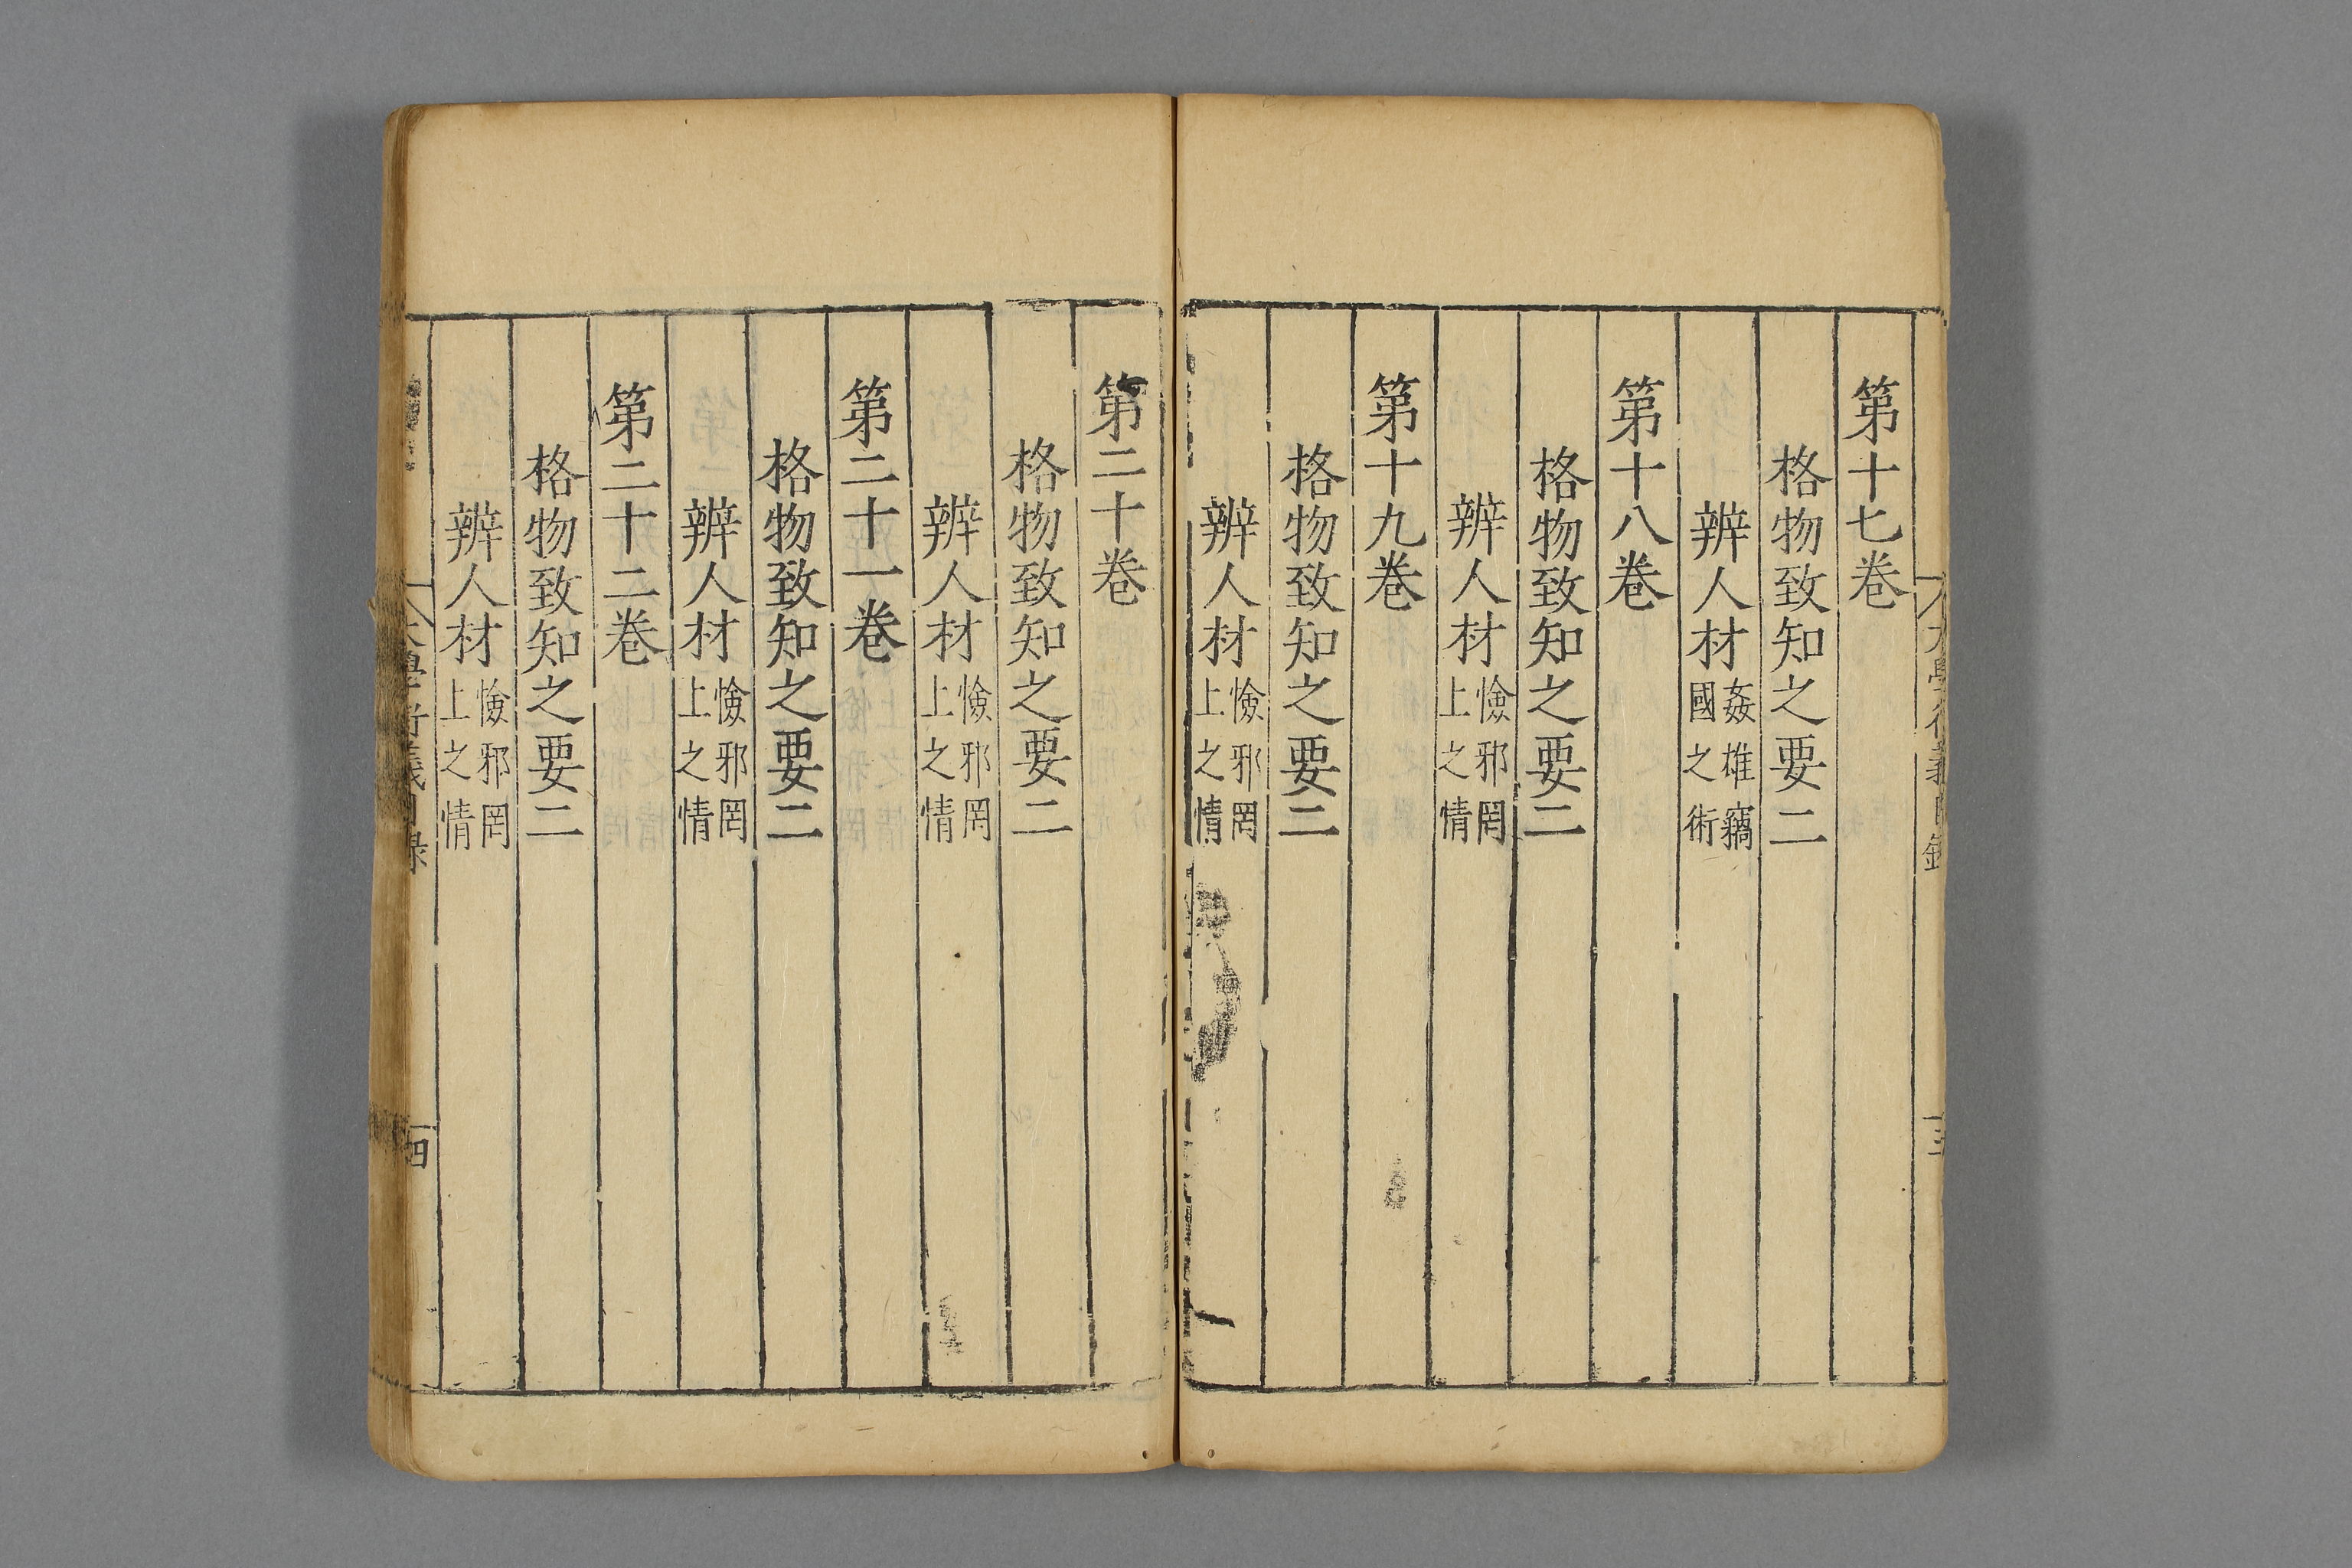 第十七卷
格物致知之要二
辨人材姦雄竊國之術
第十八卷
格物致知之要二
辨人材憸邪罔上之情
第十九卷
格物致知之要二
辨人材憸邪罔上之情
第二十卷
格物致知之要二
辨人材憸邪罔上之情
第二十一卷
格物致知之要二
辨人材憸邪罔上之情
第二十二卷
格物致知之要二
辨人材憸邪罔上之情
四